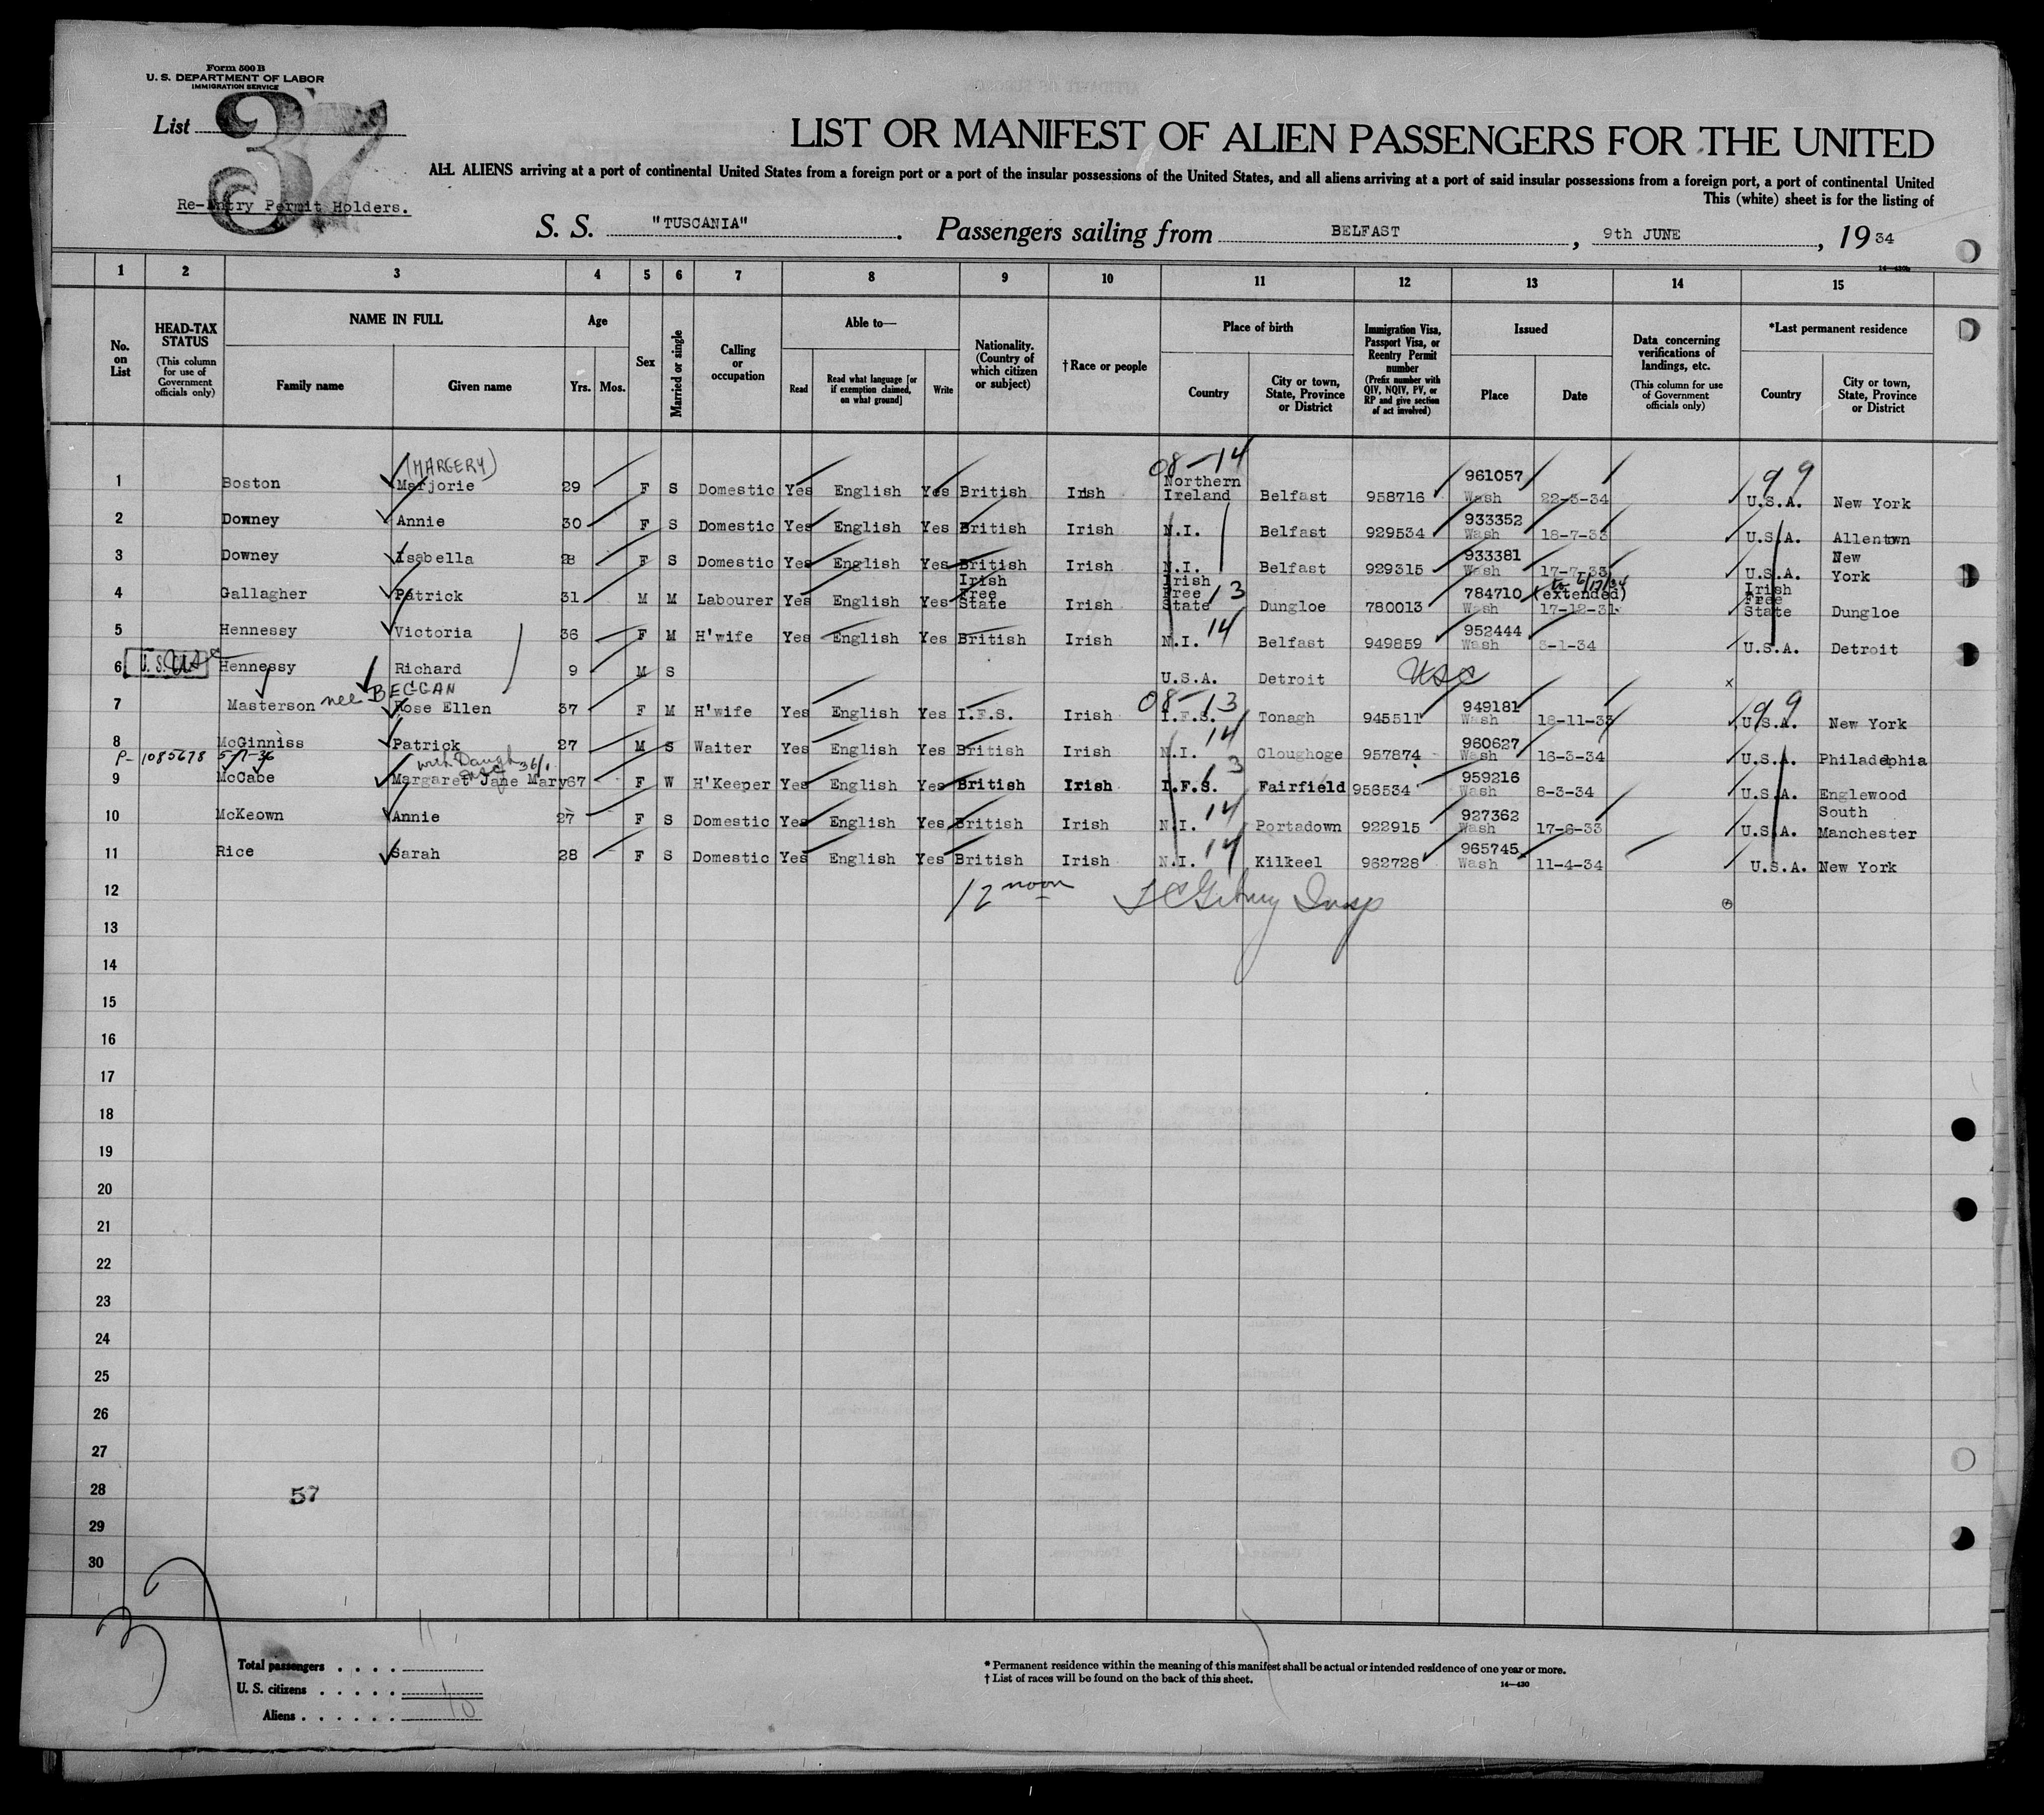 Form 500 B
U. S. DEPARTMENT OF LABOR
IMMIGRATION SERVICE
List 37
Re-Entry Permit Holders.
LIST OR MANIFEST OF ALIEN PASSENGERS FOR THE UNITED
ALL ALIENS arriving at a port of continental United States from a foreign port or a port of the insular possessions of the United States, and all aliens arriving at a port of said insular possessions from a foreign port, a port of continental United
This (white) sheet is for the listing of
S. S. "TUSCANIA". Passengers sailing from BELFAST, 9th JUNE, 1934
14—430b
1 2 3 4 5 6 7 8 9 10 11 12 13 14 15
No. on List
HEAD-TAX STATUS (This column for use of Government officials only)
NAME IN FULL
Family name Given name
Age
Yrs. Mos.
Sex
Married or single
Calling or occupation
Able to—
Read Read what language [or if exemption claimed, on what ground] Write
Nationality. (Country of which citizen or subject)
† Race or people
Place of birth
Country City or town, State, Province or District
Immigration Visa, Passport Visa, or Reentry Permit number (Prefix number with QIV, NQIV, PV, or RP and give section of act involved)
Issued
Place Date
Data concerning verifications of landings, etc. (This column for use of Government officials only)
*Last permanent residence
Country City or town, State, Province or District
(MARGERY) 08-14 99
1 Boston Marjorie 29 F S Domestic Yes English Yes British Irish Northern Ireland Belfast 958716 961057 Wash 22-3-34 U.S.A. New York
2 Downey Annie 30 F S Domestic Yes English Yes British Irish N.I. Belfast 929534 933352 Wash 18-7-33 U.S.A. Allentown
3 Downey Isabella 28 F S Domestic Yes English Yes British Irish N.I. Belfast 929315 933381 Wash 17-7-33 U.S.A. New York
4 Gallagher Patrick 31 M M Labourer Yes English Yes Irish Free State Irish Irish Free State 13 Dungloe 780013 784710 Wash (extended) to 6/17/34 17-12-31 Irish Free State Dungloe
5 Hennessy Victoria 36 F M H'wife Yes English Yes British Irish N.I. 14 Belfast 949859 952444 Wash 3-1-34 U.S.A. Detroit
6 Hennessy Richard 9 M S U.S.A. Detroit USC x
7 Masterson nee BEGGAN Rose Ellen 37 F M H'wife Yes English Yes I.F.S. Irish 08-13 I.F.S. Tonagh 945511 949181 Wash 18-11-33 99 U.S.A. New York
8 McGinniss Patrick 27 M S Waiter Yes English Yes British Irish N.I. 14 Cloughoge 957874 960627 Wash 16-3-34 U.S.A. Philadephia
P-1085678 5/7-36 with Daugh
9 McCabe Margaret Jane Mary 67 F W H'Keeper Yes English Yes British Irish I.F.S. 13 Fairfield 956534 959216 Wash 8-3-34 U.S.A. Englewood
10 McKeown Annie 27 F S Domestic Yes English Yes British Irish N.I. 14 Portadown 922915 927362 Wash 17-6-33 U.S.A. South Manchester
11 Rice Sarah 28 F S Domestic Yes English Yes British Irish N.I. 14 Kilkeel 962728 965745 Wash 11-4-34 U.S.A. New York
12 12 noon Insp
13
14
15
16
17
18
19
20
21
22
23
24
25
26
27
28 57
29
30
37
Total passengers . . . . 11
U. S. citizens . . . . . 1
Aliens . . . . . . 10
* Permanent residence within the meaning of this manifest shall be actual or intended residence of one year or more.
† List of races will be found on the back of this sheet.
14—430